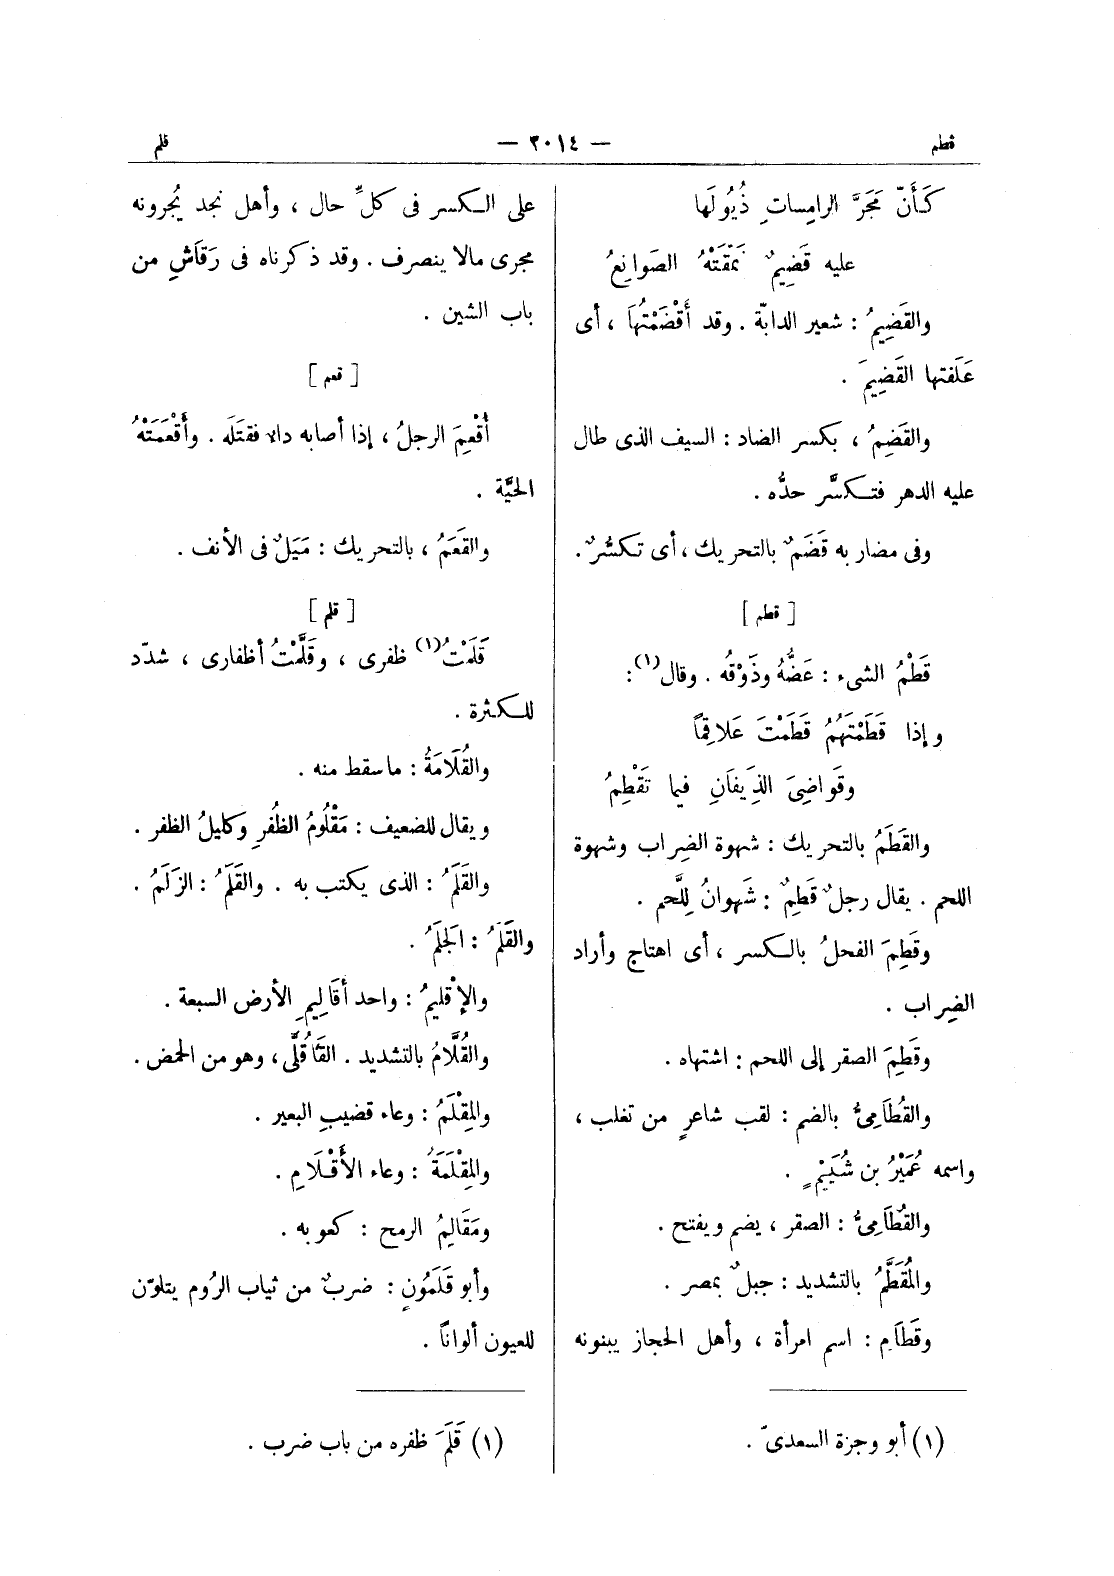 قطم
— ٢٠١٤ —
قلم
كَأَنّ مَجَرَّ الرامِساتِ ذُيُولَها
عليه قَضِيمٌ نَمَّقَتْهُ الصَوانِعُ
والقَضِيمُ : شعير الدابّة . وقد أَقْضَمْتُهَا ، أى
عَلَفتها القَضِيمَ .
والقَضِمُ ، بكسر الضاد : السيف الذى طال
عليه الدهر فتكسَّر حدُّه .
وفى مضاربه قَضَمٌ بالتحريك ، أى تكسُّرٌ .
[ قطم ]
قَطْمُ الشىء : عَضُّهُ وذَوْقُه . وقال(١) :
وإذا قَطَمْتَهُمُ قَطَمْتَ عَلاقِماً
وقَواضِىَ الذِيفَانِ فيما تَقْطِمُ
والقَطَمُ بالتحريك : شهوة الضِراب وشهوة
اللحم . يقال رجلٌ قَطِمٌ : شَهوانُ لِلَّحم .
وقَطِمَ الفحلُ بالكسر ، أى اهتاج وأراد
الضِراب .
وقَطِمَ الصقر إلى اللحم : اشتهاه .
والقُطَامِىُّ بالضم : لقب شاعرٍ من تغلب ،
واسمه عُمَيْرُ بن شُيَيْمٍ .
والقُطَامِىُّ : الصقر ، يضم ويفتح .
والمُقَطَّمُ بالتشديد : جبلٌ بمصر .
وقَطَامِ : اسم امرأة ، وأهل الحجاز يبنونه
(١) أبو وجزة السعدىّ .
على الكسر فى كلِّ حال ، وأهل نجد يُجرونه
مجرى مالا ينصرف . وقد ذكرناه فى رَقَاشِ من
باب الشين .
[ قعم ]
أُقْعِمَ الرجلُ ، إذا أصابه داء فقتَلَه . وأَقْعَمَتْهُ
الحيَّة .
والقَعَمُ ، بالتحريك : مَيَلٌ فى الأنف .
[ قلم ]
قَلَمْتُ(١) ظفرى ، وقَلَّمْتُ أظفارى ، شدّد
للكثرة .
والقُلَامَةُ : ماسقط منه .
ويقال للضعيف : مَقْلُومُ الظُفُرِ وكليلُ الظفر .
والقَلَمُ : الذى يكتب به . والقَلَمُ : الزَلَمُ .
والقَلَمُ : الجَلَمُ .
والإقْليمُ : واحد أقَالِيمِ الأرض السبعة .
والقُلَّامُ بالتشديد . القَاقُلَّى ، وهو من الحمض .
والمِقْلَمُ : وعاء قضيبِ البعير .
والمِقْلَمَةُ : وعاء الأَقْلَامِ .
ومَقَالِمُ الرمح : كعوبه .
وأبو قَلَمُونٍ : ضربٌ من ثياب الرُوم يتلوّن
للعيون ألواناً .
(١) قَلَمَ ظفره من باب ضرب .